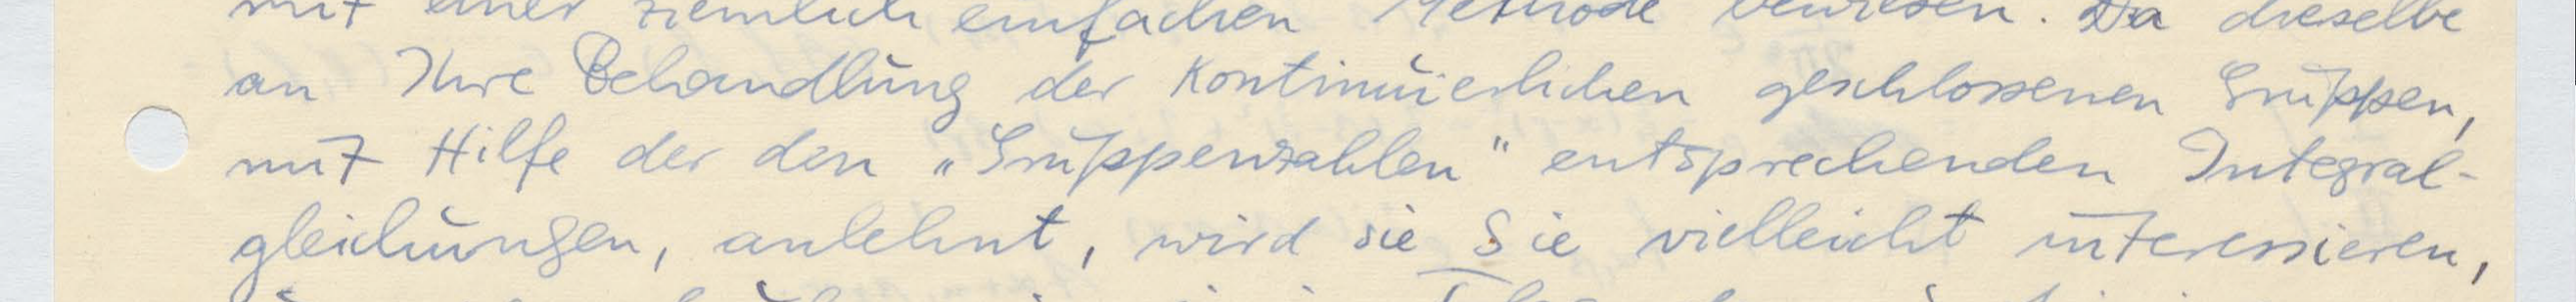 mit einer ziemlich einfachen Methode bewiesen. Da dieselbe
an Ihre Behandlung der kontinuierlichen geschlossenen Gruppen,
mit Hilfe der den „Gruppenzahlen" entsprechenden Integral-
gleichungen, anlehnt, wird sie Sie vielleicht interessieren,